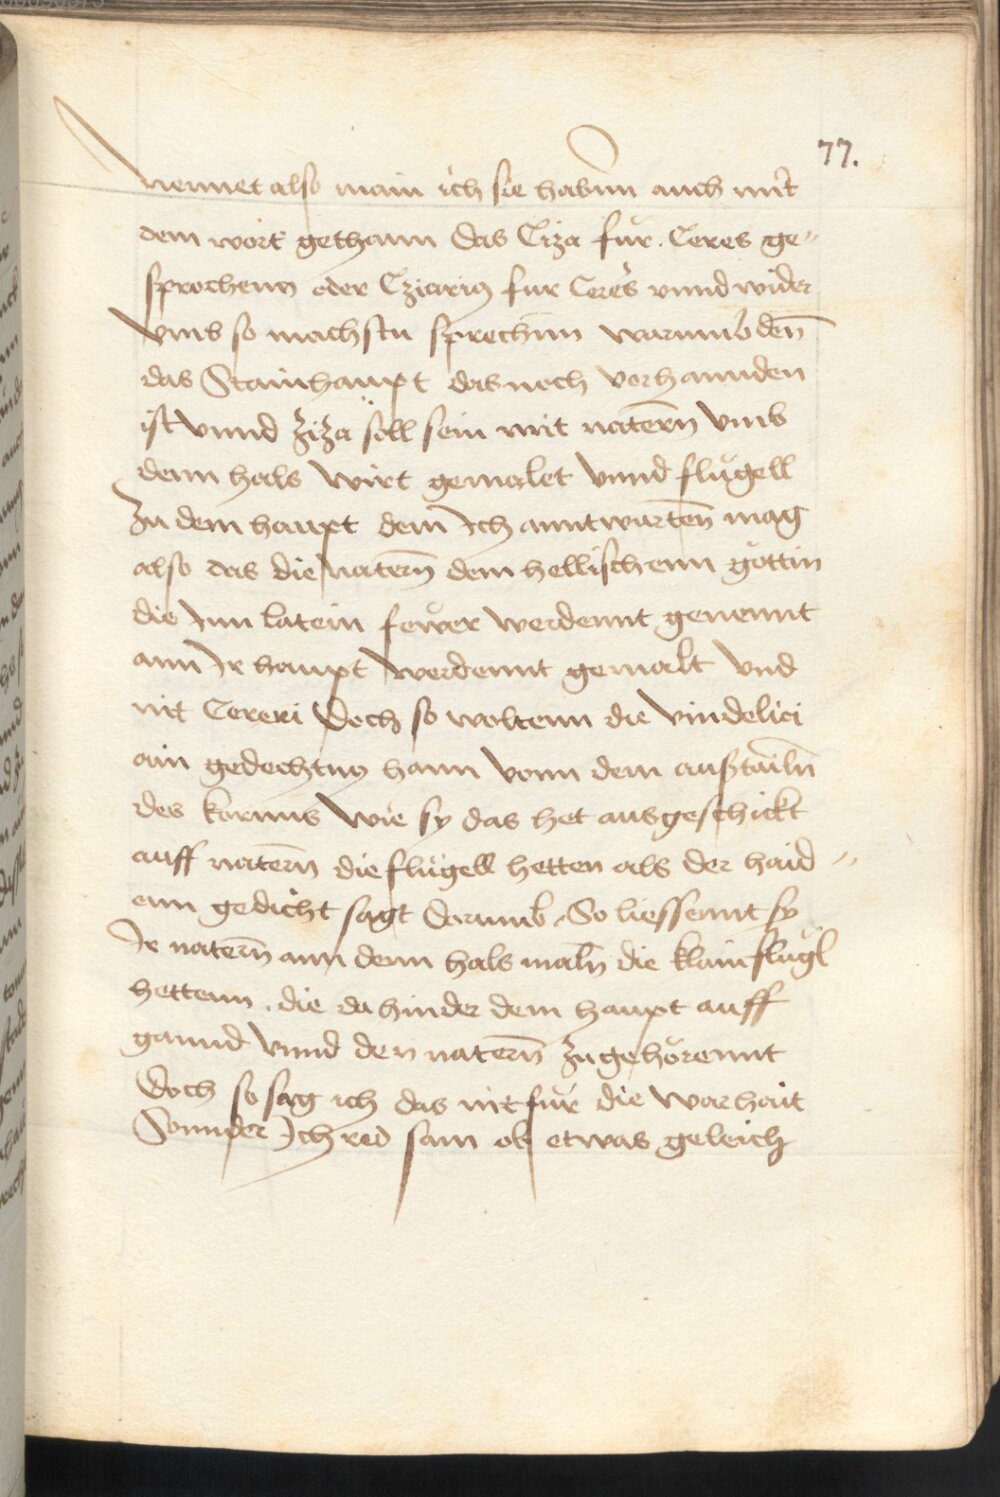 77.
nennet also main ich sie habenn auch mit
dem wort gethann das Ciza für . Ceres ge„
sprochenn oder Cziarig fur Ceres vnnd wider
vmb so machstu sprechenn warumb den̄
das Stainhaupt das noch vorhannden
ist vnnd ziza söll sein mit natern̄ vmb
denn hals wirt gemalet vnnd flügell
zu dem haupt dem Ich anntwurten̄ mag
also das die natern̄ dem hellischenn göttin
die Inn latein fewer werdennt genennt
ann Ir haupt werdennt gemalt vnd
nit Cereri Doch so woltenn die vindelici
ain gedechtnus hann vonn dem ausztailn̄
des korenns wie sy das het ausgeschickt
auff natern̄ die flügell hetten als der haid„
enn gedicht sagt darumb . So liessennt sy
Ir natern̄ ann denn hals maln̄ die klain flügl
hettenn . die da hinder dem haupt auff
gannd vnnd den natern̄ zugehörennt
Doch so sag ich das nit für die warhait
Sonnder Ich red sam ob etwas geleich